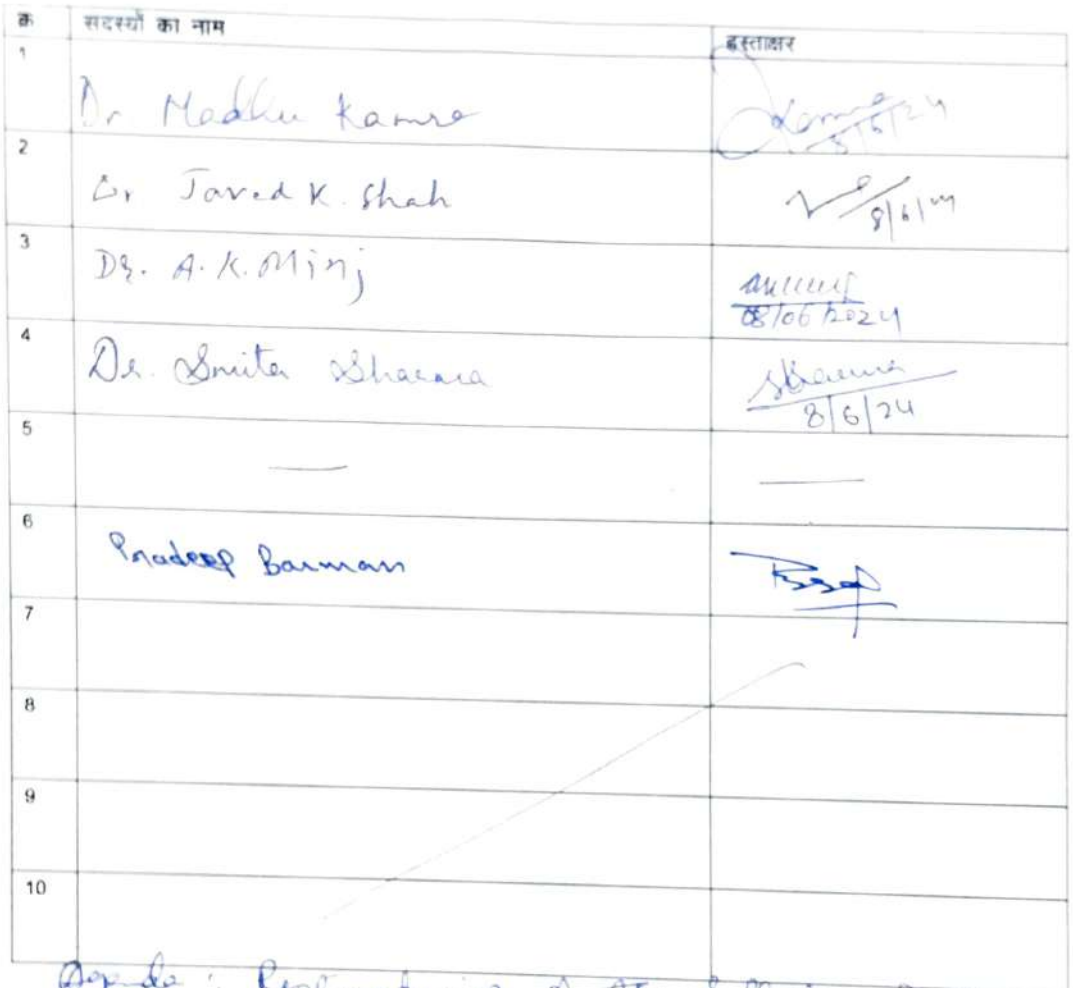 क्र सदस्यों का नाम हस्ताक्षर
1 Dr Madhu Kamra Kamra 8/6/24
2 Dr Javed K. Shah 8/6/24
3 Dr. A. K. Minj 08/06/2024
4 Dr. Smita Sharma SSharma 8/6/24
5 — —
6 Pradeep Barman
7
8
9
10
Agenda :